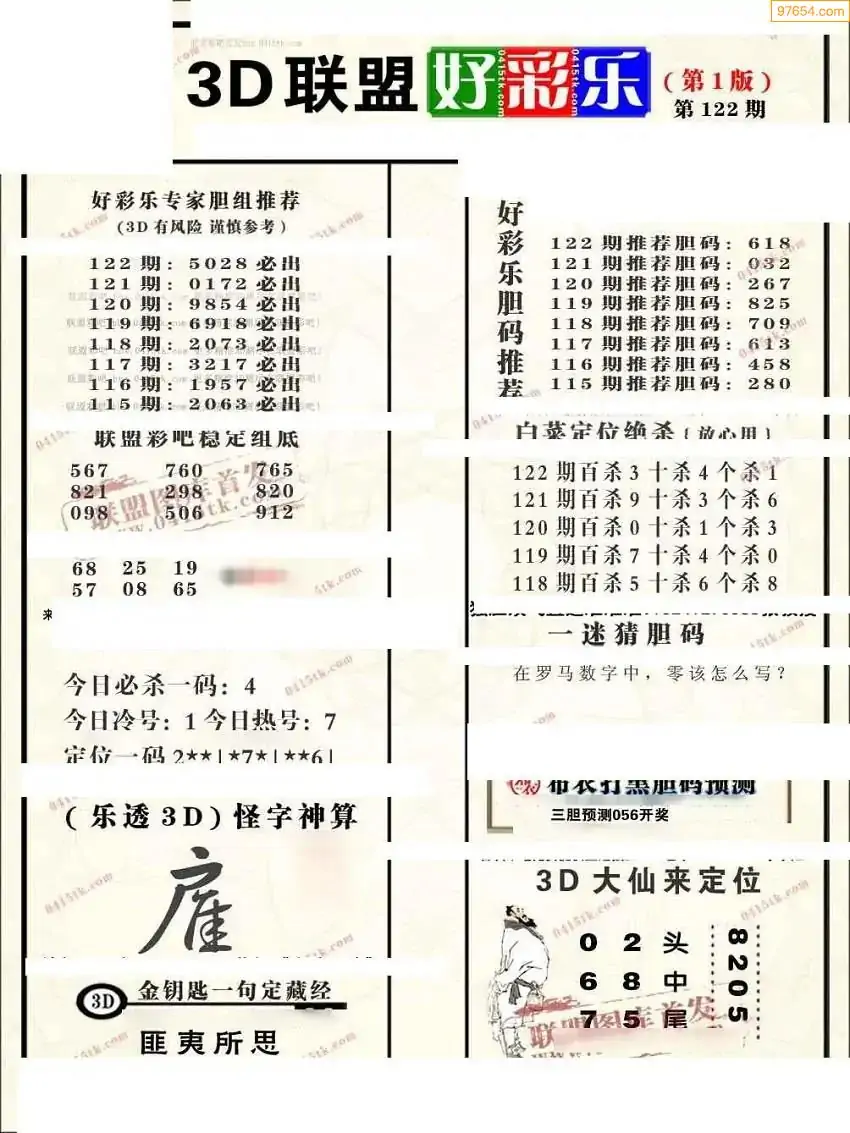 97654.com
3D联盟好彩乐
(第1版)
第122期
好彩乐专家胆组推荐
(3D有风险 谨慎参考)
122期: 5028必出
121期: 0172必出
120期: 9854必出
119期: 6918必出
118期: 2073必出
117期: 3217必出
116期: 1957必出
115期: 2063必出
联盟彩吧稳定组底
567 760 765
821 298 820
098 506 912
68 25 19
57 08 65
来
今日必杀一码: 4
今日冷号: 1 今日热号: 7
定位一码 2**|*7*|**6|
(乐透3D)怪字神算
3D 金钥匙一句定藏经
匪夷所思
好彩乐胆码推荐
122期推荐胆码: 618
121期推荐胆码: 032
120期推荐胆码: 267
119期推荐胆码: 825
118期推荐胆码: 709
117期推荐胆码: 613
116期推荐胆码: 458
115期推荐胆码: 280
白菜定位绝杀{放心用}
122期百杀3十杀4个杀1
121期百杀9十杀3个杀6
120期百杀0十杀1个杀3
119期百杀7十杀4个杀0
118期百杀5十杀6个杀8
一迷猜胆码
在罗马数字中，零该怎么写?
布衣打黑胆码预测
三胆预测056开奖
3D大仙来定位
0 2 头
6 8 中
7 5 尾
8205
联盟图库首发
www.0415tk.com
0415tk.com